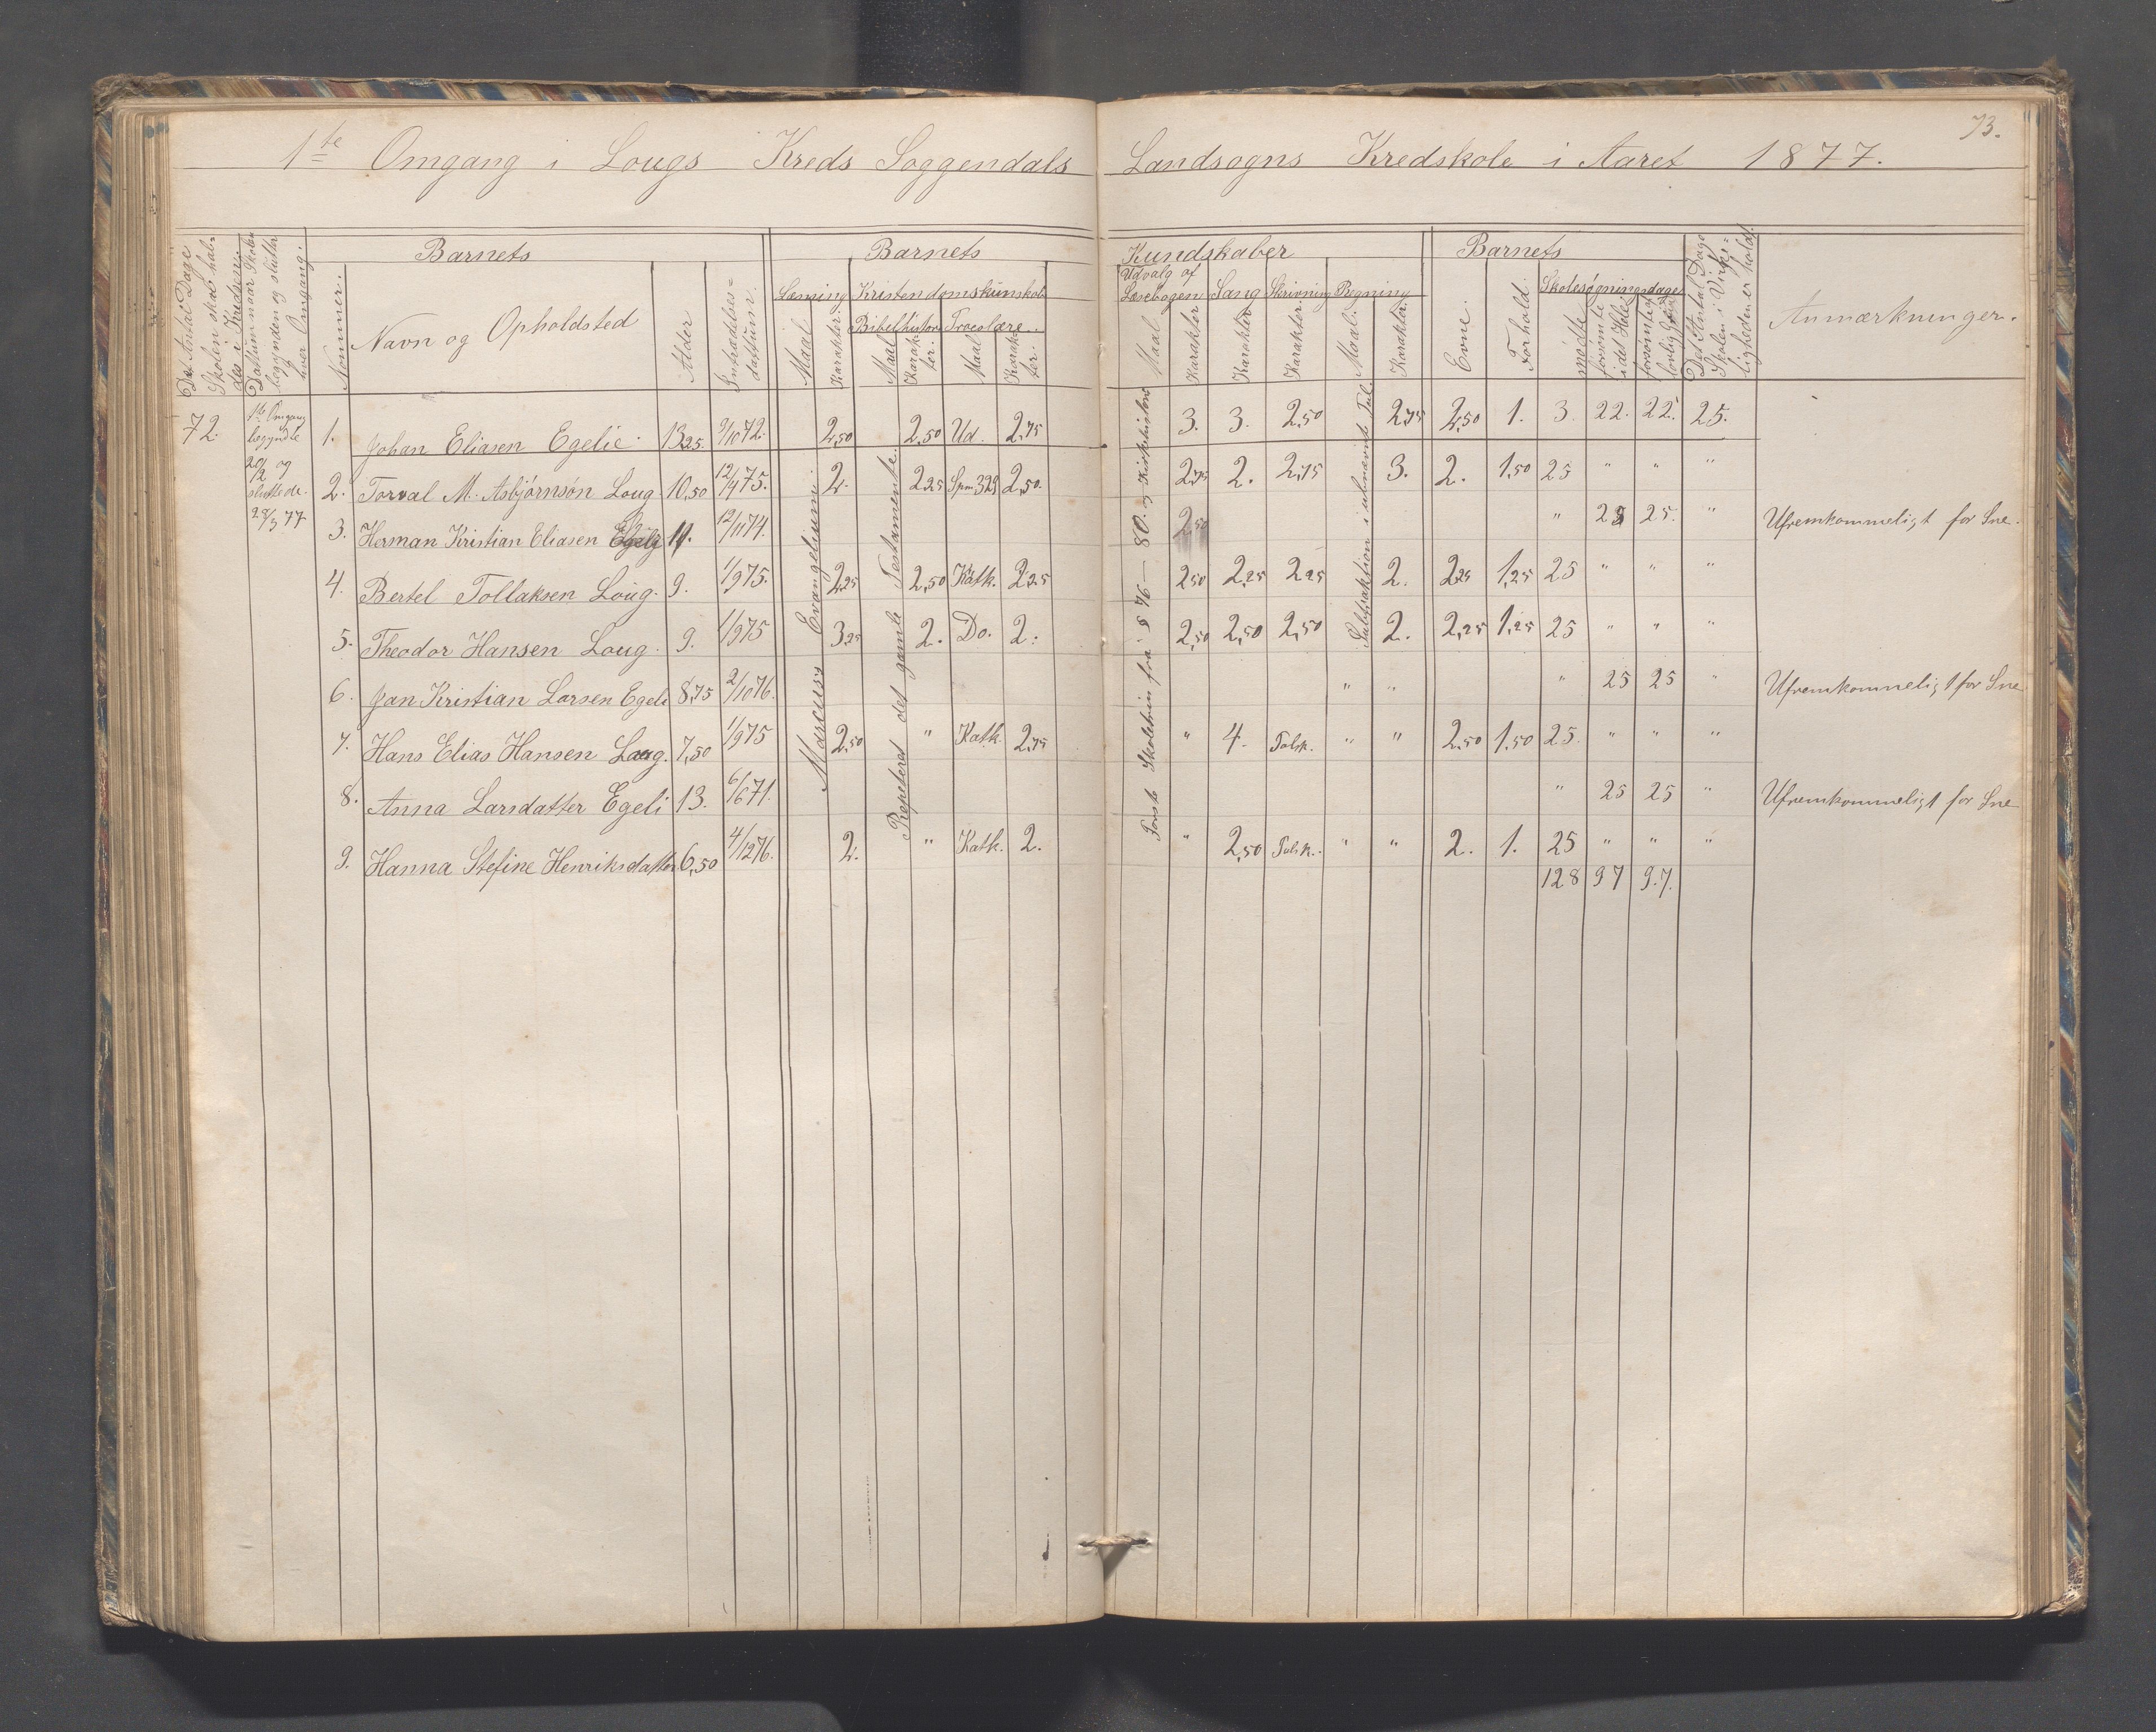 73.
1te Omgang i Lougs Kreds Soggendals Landsogns Kredskole i Aaret 1877.
Det Antal Dage Skolen skal holdes i Kredsen.
Datum naar Skolen begynder og slutter hver Omgang.
Barnets
Nommer.
Navn og Opholdsted
Alder
Indtrædelsesdattum.
Barnets Kundskaber
Læsning
Maal
Karakter
Kristendomskunskab
Bibelhistorie
Maal
Karakter.
Troeslære.
Maal
Karakter.
Udvalg af Læsebogen
Maal
Karakter
Sang
Karakter
Skrivning
Karakter.
Regning
Maal.
Karakter.
Barnets
Evne.
Forhold
Skolesøgningsdage
mødte
forsømte i det Hele
forsømt af lovlig Grund
Det Antal Dage Skolen i Virkeligheden er holdt.
Anmærkninger.
72.
1te Omgang begyndte 20/2 og sluttede. 28/3 77
Marcuss Evangelium
Repeteret det gamle Testamente.
Første Skoletrin fra § 76 — 80. og Kirkehistorie
Subtraktion i ubenævnte Tal.
1. Johan Eliasen Egelie. 13,25. 9/10 72. 2,50 2,50 Ud. 2,75 3. 3. 2,50 2,75 2,50 1. 3. 22. 22. 25.
2. Torval M. Asbjørnsøn Loug. 10,50 12/4 75. 2. 2,25 Spm 329 2,50. 2,75 2. 2,75 3. 2. 1,50 25 " " "
3. Herman Kristian Eliasen Egelie 11. 12/11 74. 2,50 " 25 25. " Ufremkommeligt for Sne.
4. Bertel Tollaksen Loug. 9. 1/9 75. 2,25 2,50 Katk. 2,25 2,50 2,25 2,25 2. 2,25 1,25 25 " " "
5. Theodor Hansen Loug. 9. 1/9 75 3,25 2. Do. 2. 2,50 2,50 2,50 2. 2,25 1,25 25 " " "
6. Jan Kristian Larsen Egeli 8,75 2/10 76. " " " 25 25 " Ufremkommeligt for Sne
7. Hans Elias Hansen Loug. 7,50 1/9 75 2,50 " Katk. 2,75 " 4. Talsk. " " 2,50 1,50 25. " " "
8. Anna Larsdatter Egeli 13. 6/6 71. " 25 25 " Ufremkommeligt for Sne
9. Hanna Stefine Henriksdatter 6,50 4/12 76. 2. " Katk. 2. " 2,50 Talsk. " " 2. 1. 25 " " "
128 97 97.